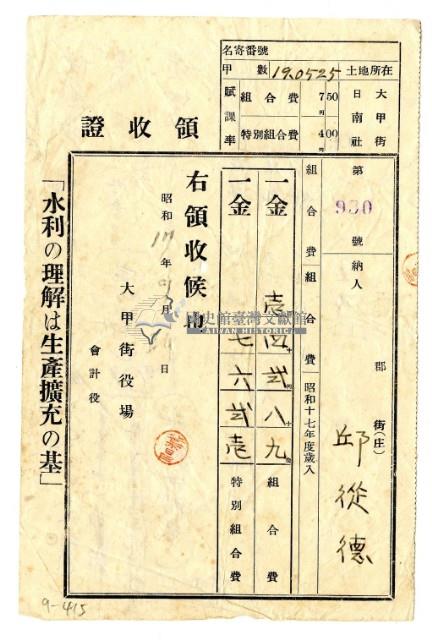 名寄番號
土地所在 大甲街 日南社
甲數 19.0525
賦課率
組合費 7円50
特別組合費 4円00
領收證
第 930 號
納人 郡 街(庄) 邱從德
組合費組合費 昭和十七年度歲入
一金 壹四貳八九 組合費
一金 七六貳壱 特別組合費
右領收候也
昭和 17 年 月 日
大甲街役場
會計役
「水利の理解は生產擴充の基」
國史館臺灣文獻館
TAIWAN HISTORICA
9-415